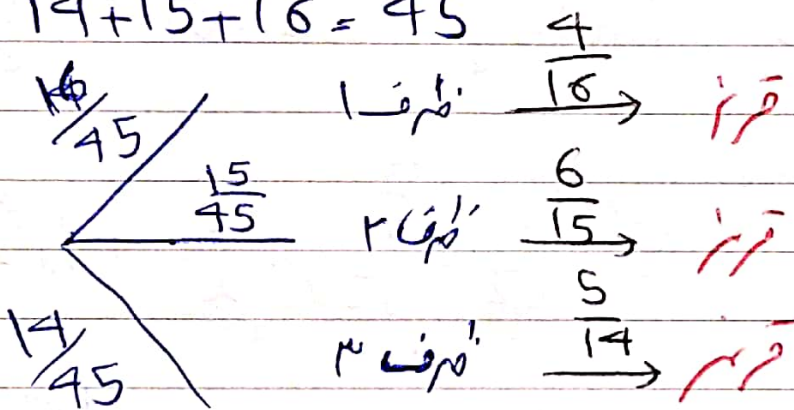 14+15+16=45
16/45 ظرف ۱ 4/16 قرمز
15/45 ظرف ۲ 6/15 قرمز
14/45 ظرف ۳ 5/14 قرمز